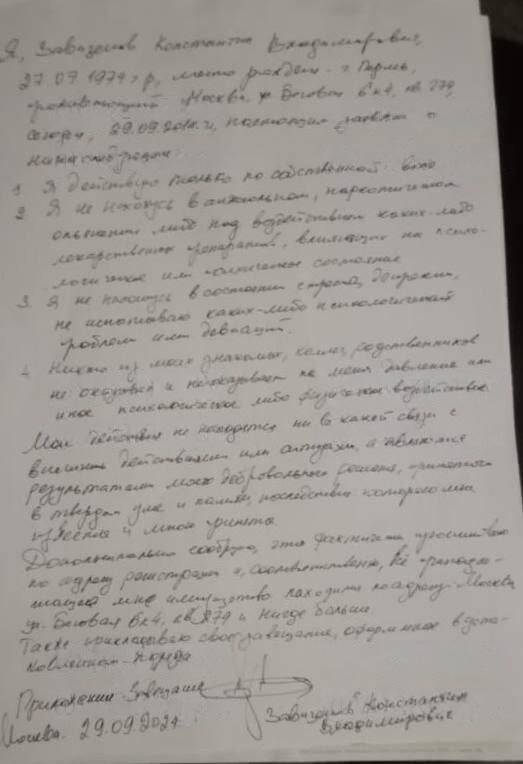 Я, Завизенов Константин Владимирович,
27.09.1974 г.р, место рожден. г. Пермь,
проживающий Москва, ул Беговая 6 к4, кв 279,
сегодня, 29.09.2024 г, настоящим заявляю о
нижеследующем:
1. Я действую только по собственной воле
2. Я не нахожусь в алкогольном, наркотическом
опьянении либо под воздействием каких-либо
лекарственных препаратов, влияющих на психо-
логическое или состояние
3. Я не нахожусь в состоянии стресса, депрессии,
не испытываю каких-либо психологических
проблем или девиаций.
4. Никто из моих знакомых, коллег, родственников
не оказывал и не оказывает на меня давление или
иное психологическое либо физическое воздействие
Мои действия не находятся ни в какой связи с
внешними действиями или ситуациями, а являются
результатом моего добровольного решения, принятого
в твердом уме и памяти, последствия которого мне
известны и мной приняты.
Дополнительно сообщаю, что фактически проживаю
по адресу регистрации и, соответственно, всё принадле-
жащее мне имущество находится по адресу Москва,
ул. Беговая 6к4, кв 279 и нигде больше.
Также прикладываю свое завещание, оформленное в уста-
новленном порядке
Приложение Завещание
Москва. 29.09.2024
Завизенов Константин
Владимирович